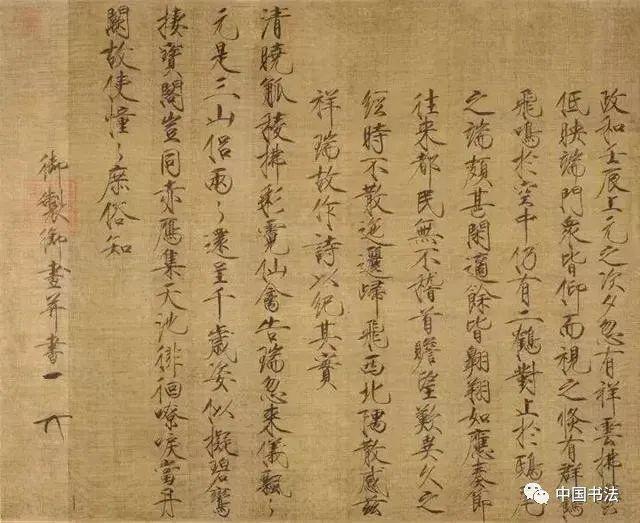 政和壬辰上元之次夕忽有祥雲拂鬱
低映端門衆皆仰而視之倏有群鶴
飛鳴於空中仍有二鶴對止於鴟尾
之端頗甚閑適餘皆翱翔如應奏節
往來都民無不稽首瞻望歎異久之
經時不散迤邐歸飛西北隅散感茲
祥瑞故作詩以紀其實
清曉觚稜拂彩霓仙禽告瑞忽來儀飄〻
元是三山侶兩〻還呈千歲姿似擬碧鸞
棲寶閣豈同赤鴈集天池徘徊嘹唳當丹
闕故使憧〻庶俗知
御製御畫并書
中国书法